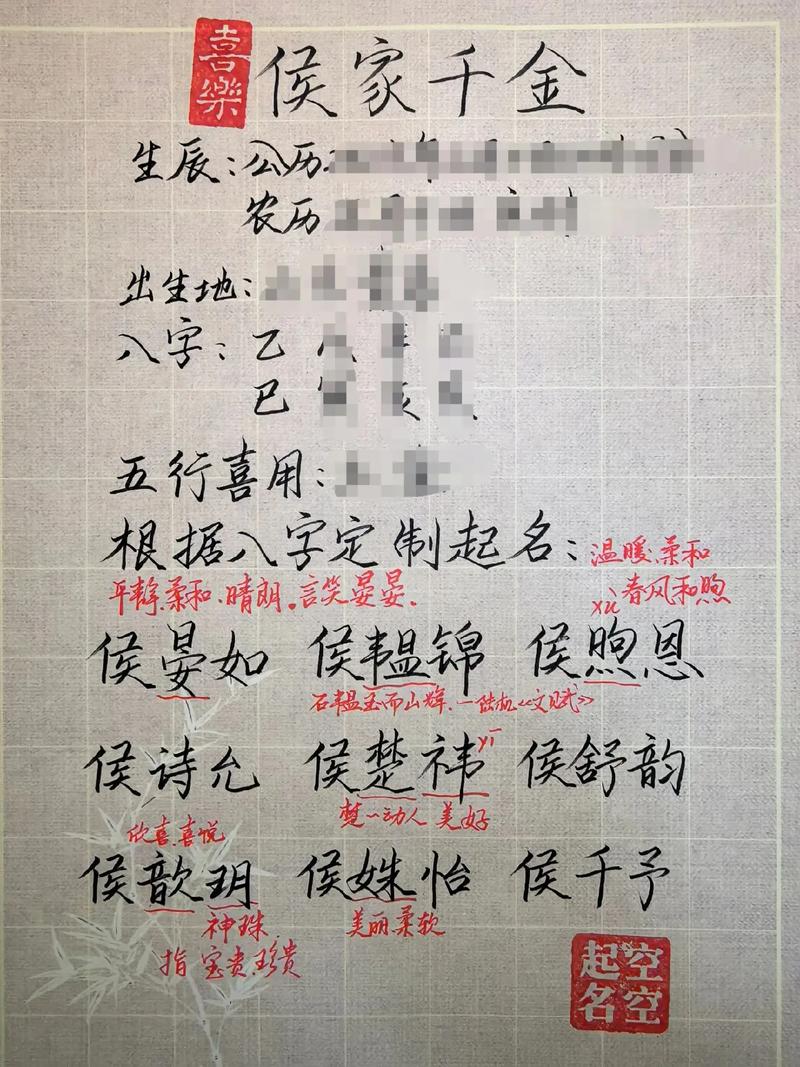 喜樂
侯家千金
生辰：公历
农历
出生地：
八字：乙
巳
五行喜用：
根据八字定制起名：温暖、柔和
平静、柔和、晴朗。言笑晏晏。
xù 春风和煦
侯晏如 侯韫锦 侯煦恩
石韫玉而山辉 — 陆机《文赋》
侯诗允 侯楚祎 侯舒韵
yī
欣喜、喜悦 楚楚动人 美好
侯歆玥 侯姝怡 侯千予
神珠 美丽柔软
指宝贵、珍贵
空空
起名